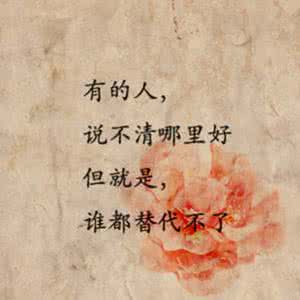 有的人，
说不清哪里好
但就是，
谁都替代不了